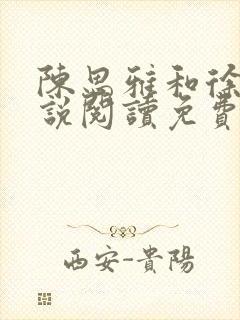 陳思雅和徐
說閱讀免費
西安-貴陽